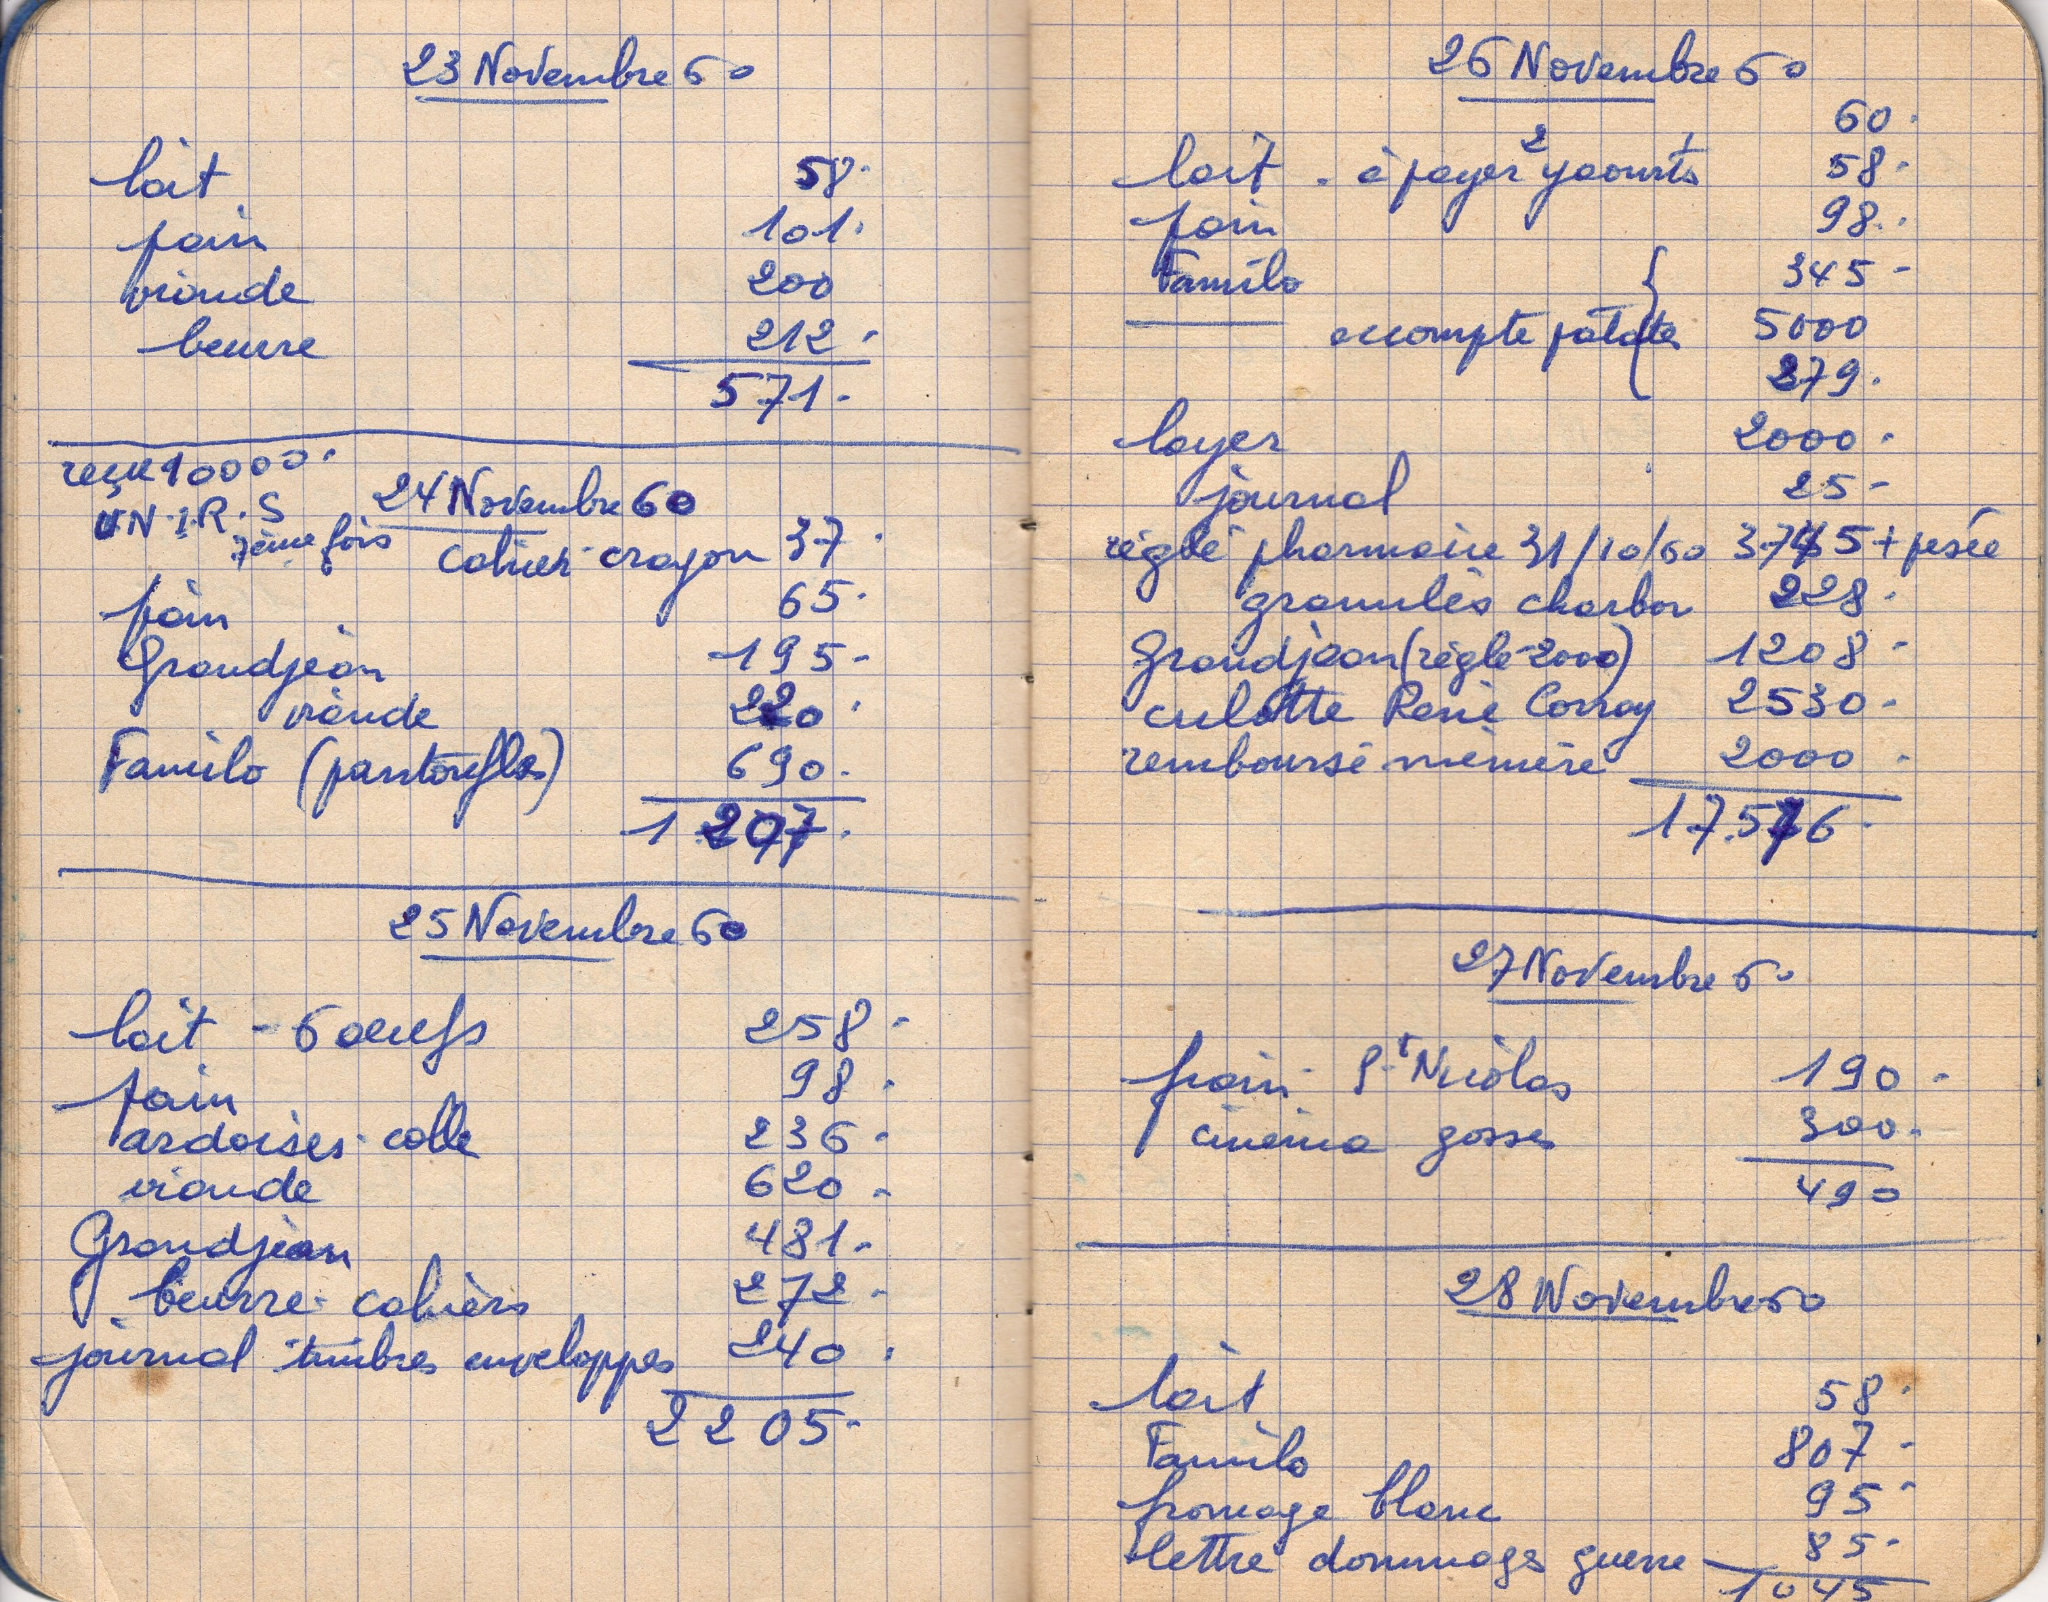 23 Novembre 60
lait 58.
pain 101.
viande 200
beurre 212.
571.
reçu 10000.
U.N.I.R.S
7ème fois
24 Novembre 60
cahier crayon 37.
pain 65.
Grandjean 195-
viande 220.
Familo (pantoufles) 690.
1207.
25 Novembre 60
lait - 6 oeufs 258-
pain 98.
ardoises- colle 236-
viande 620-
Grandjean 481-
beurre- cahiers 272-
journal timbres enveloppes 240.
2205-
26 Novembre 60
60.
lait. à payer 2 yaourts 58.
pain 98.
Familo 345-
accompte patates 5000
279.
loyer 2000.
journal 25-
réglé pharmacie 31/10/60 3745 + pesée
granulés charbon 228.
Grandjean (réglé 2000) 1208-
culotte René Conray 2530-
remboursé mémère 2000.
17.576.
27 Novembre 60
pain- St Nicolas 190-
cinéma gosses 300.
490
28 Novembre 60
lait 58.
Familo 807-
fromage blanc 95-
lettre dommages guerre 85-
1045